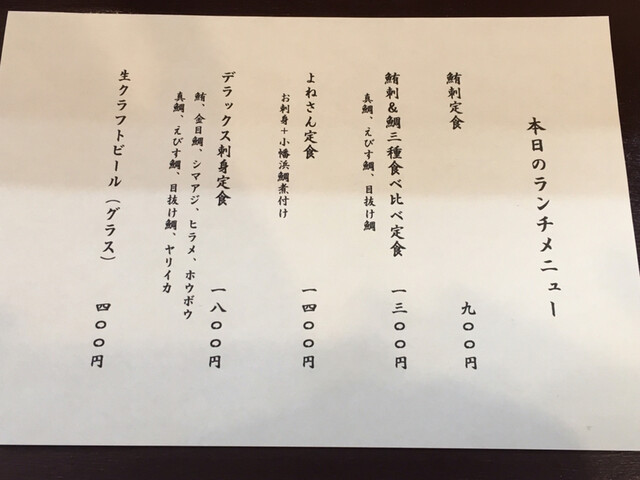 本日のランチメニュー
鮪刺定食 九〇〇円
鮪刺&鯛三種食べ比べ定食 一三〇〇円
真鯛、えびす鯛、目抜け鯛
よねさん定食 一四〇〇円
お刺身+小幡浜鯛煮付け
デラックス刺身定食 一八〇〇円
鮪、金目鯛、シマアジ、ヒラメ、ホウボウ
真鯛、えびす鯛、目抜け鯛、ヤリイカ
生クラフトビール(グラス) 四〇〇円